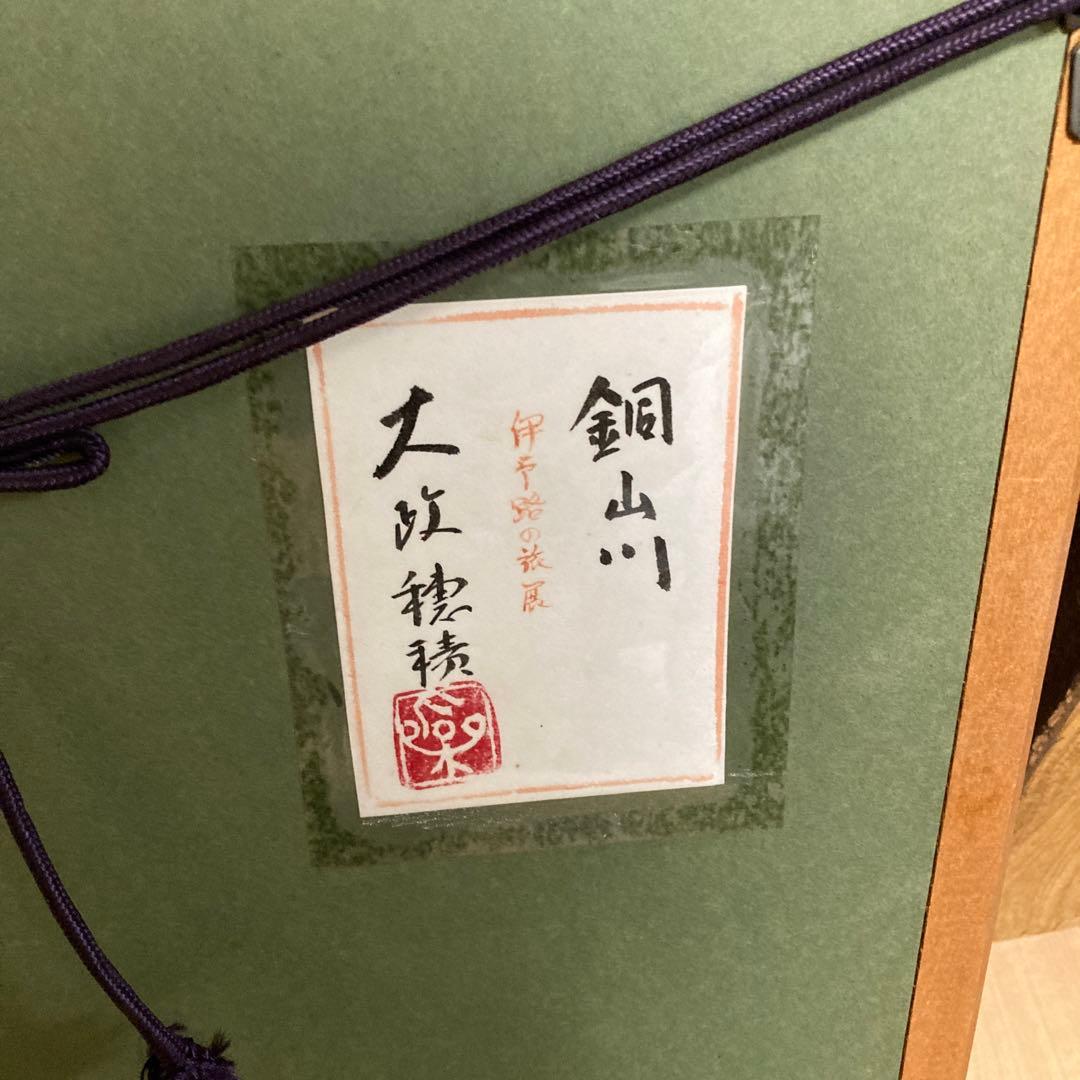 銅山川
伊予路の旅展
大政穂積